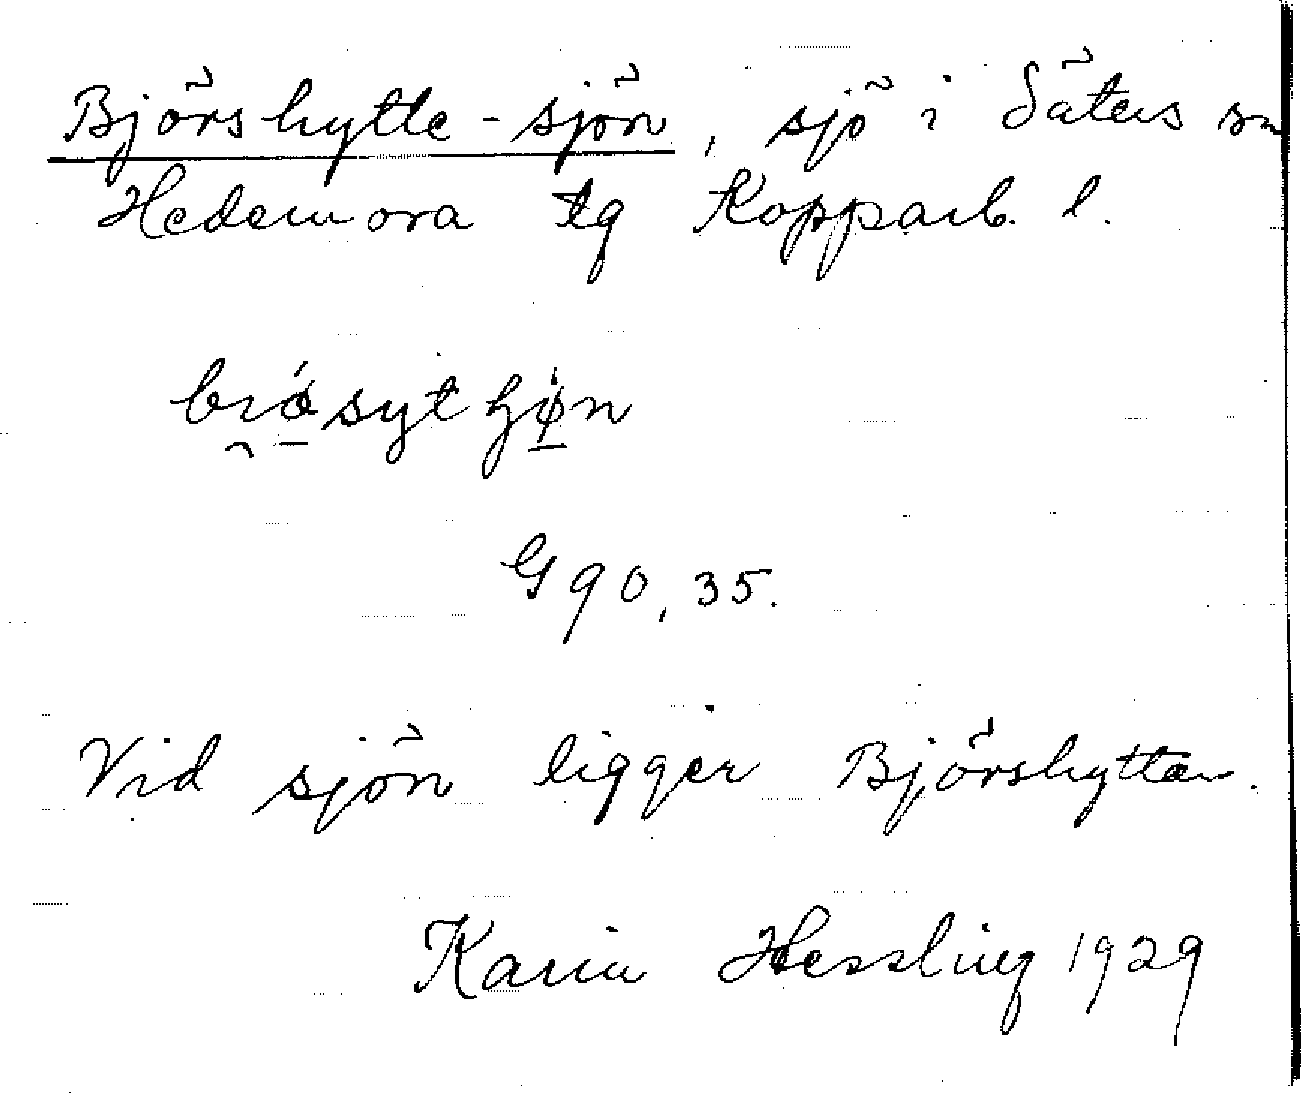 Björshytte-sjön, sjö i Säters sn
Hedemora tg Kopparb. l.
G 90, 35.
Vid sjön ligger Björshyttan.
Karin Hessling 1929